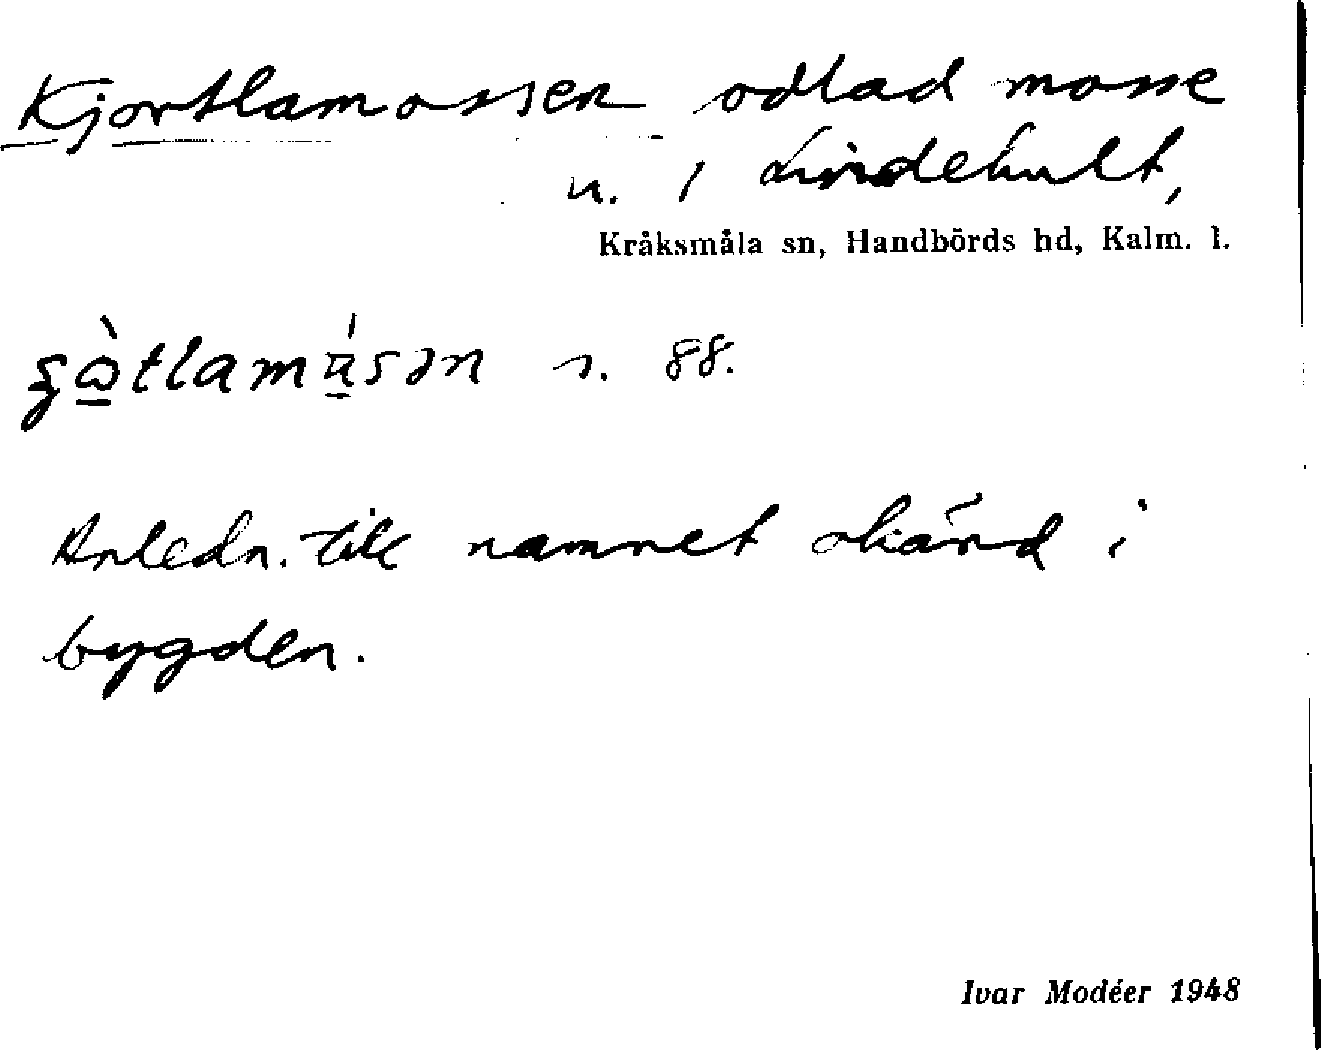 Kjortlamossen odlad mosse
u. 1 Lindehult,
Kråksmåla sn, Handbörds hd, Kalm. l.
s. 88.
Anledn. till namnet okänd i
bygden.
Ivar Modéer 1948